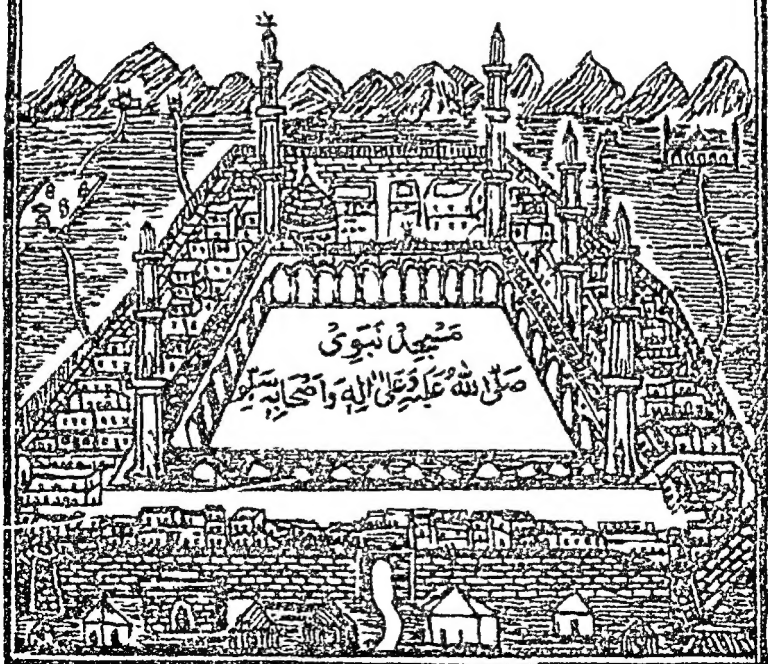 مَسْجِدْ نَبَوِیْ
صَلَّی اللهُ عَلَیْهِ وَعَلٰی اٰلِهٖ وَاَصْحَابِهٖ وَسَلَّمَ